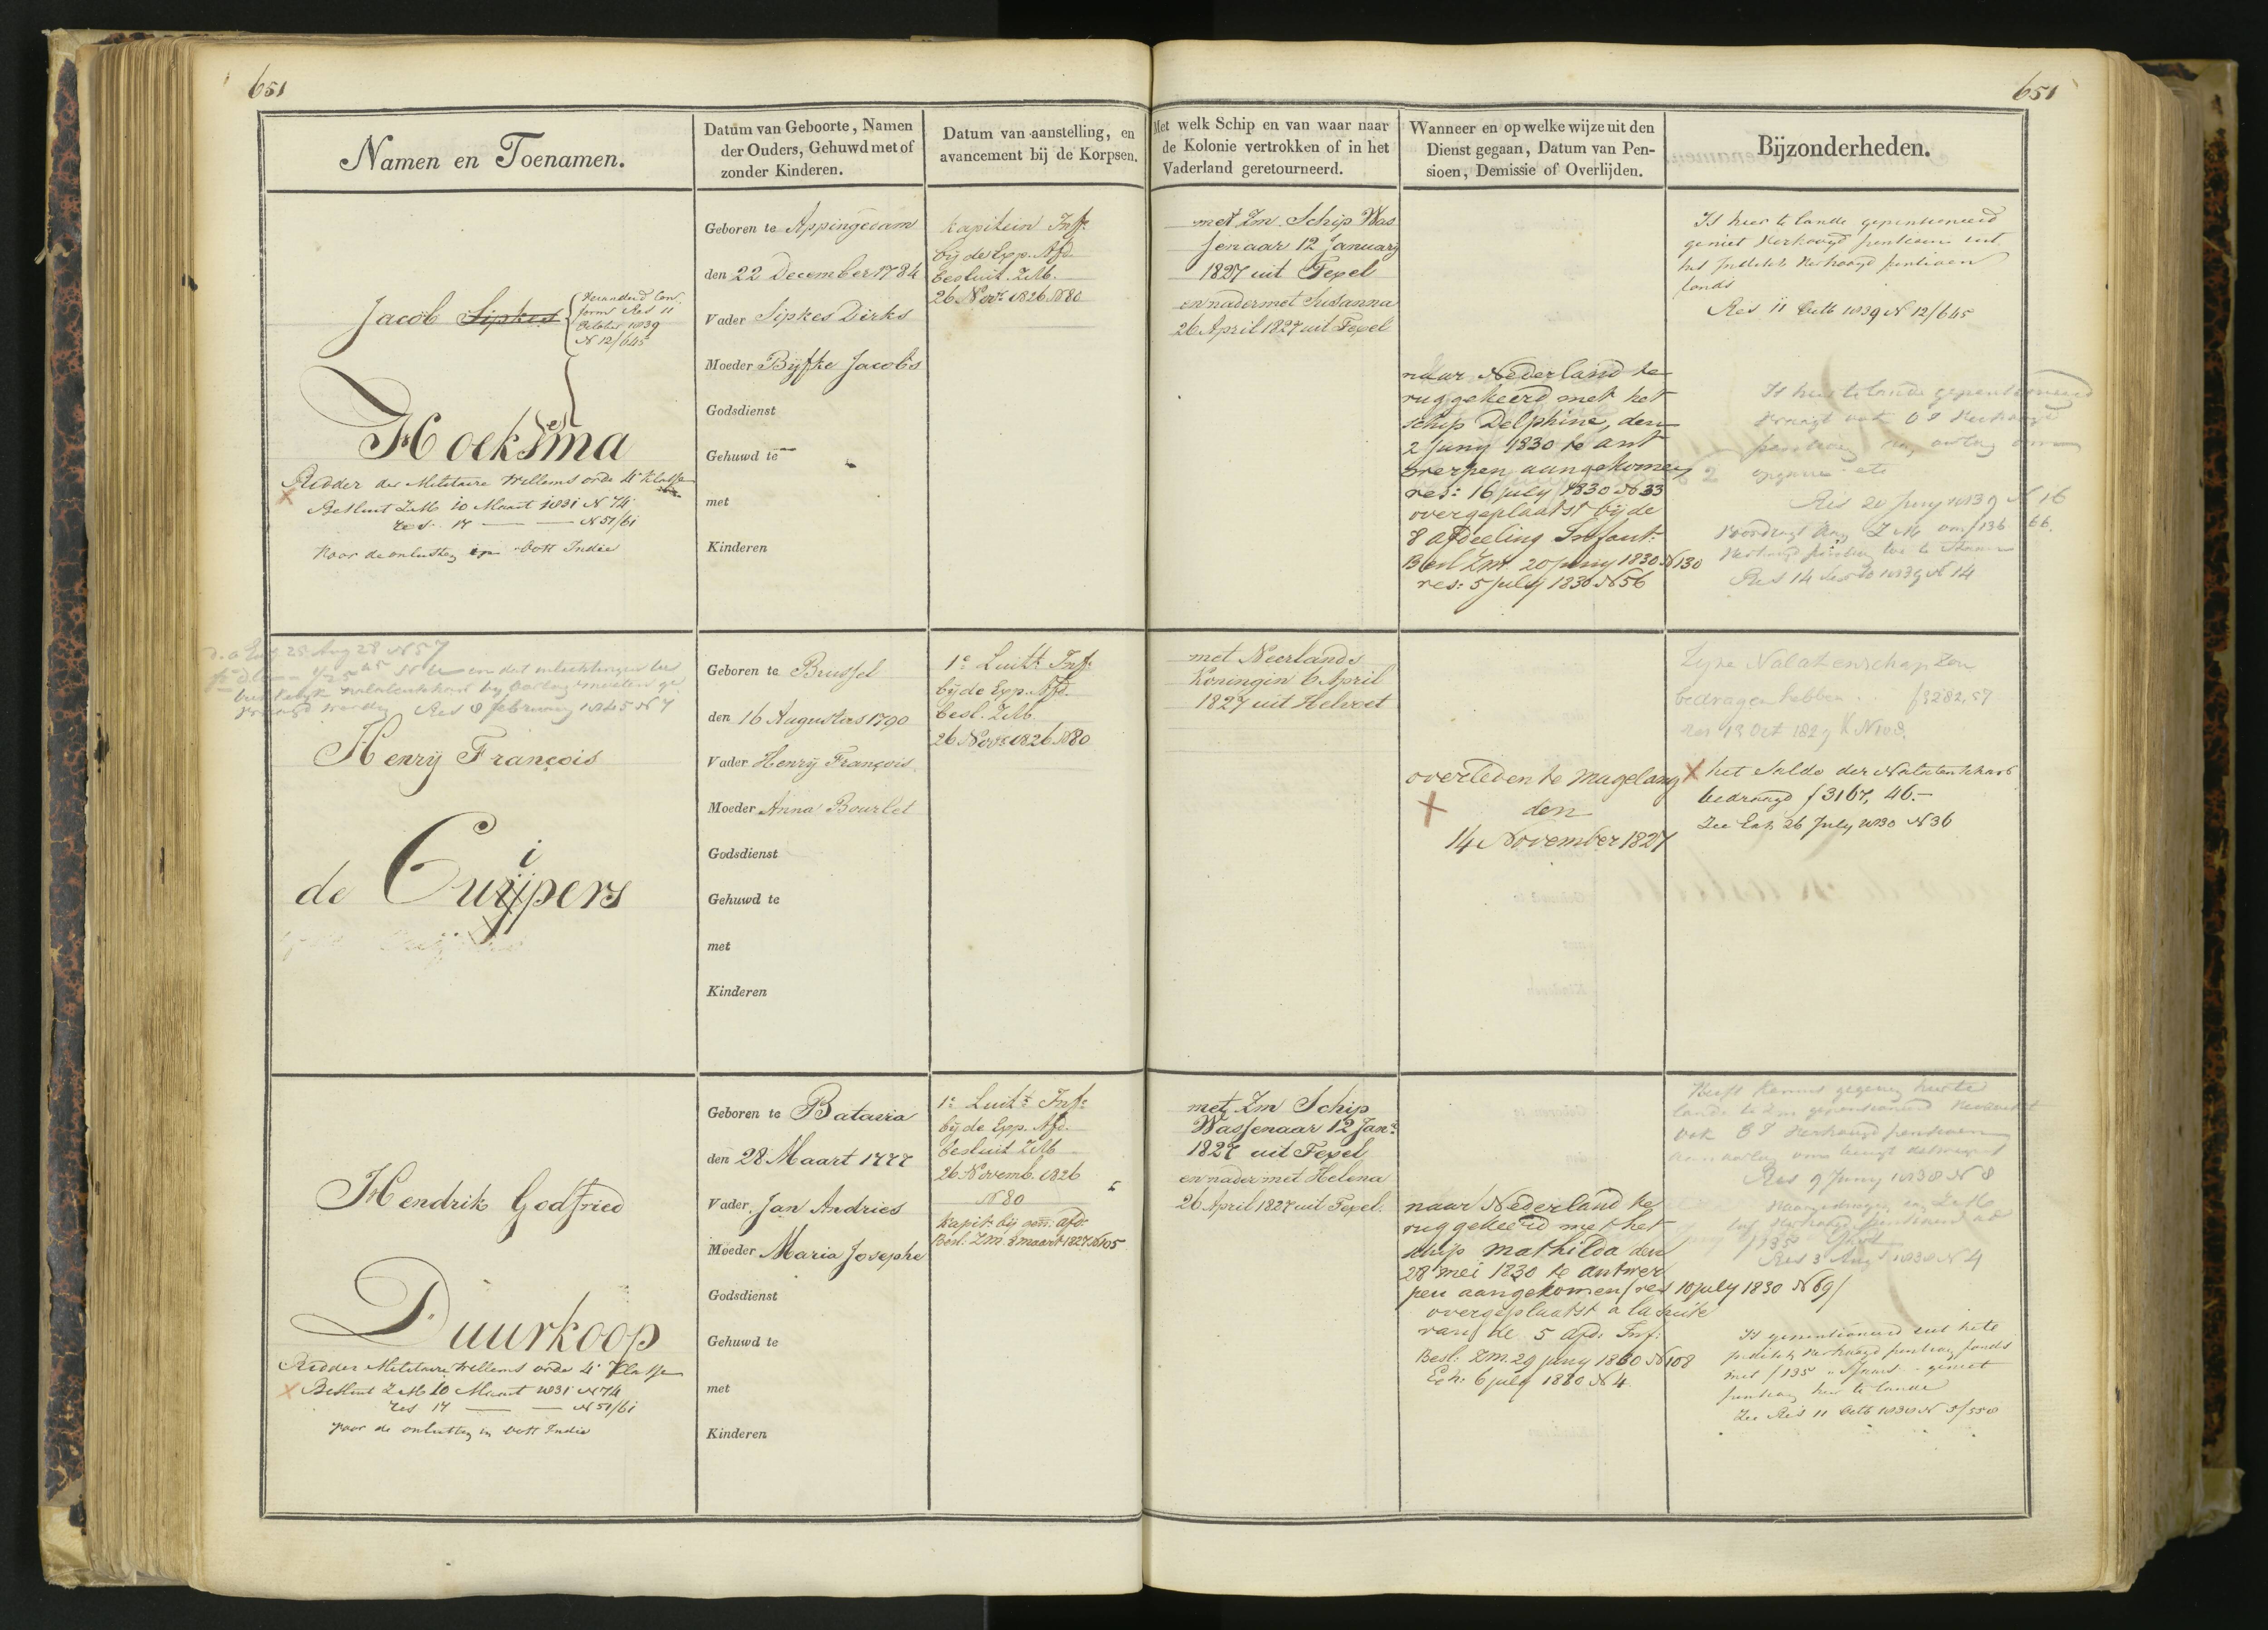 651
651
Namen en Toenamen.
Datum van Geboorte, Namen
der Ouders, Gehuwd met of
zonder Kinderen.
Datum van aanstelling, en
avancement bij de Korpsen.
Met welk Schip en van waar naar
de Kolonie vertrokken of in het
Vaderland geretourneerd.
Wanneer en op welke wijze uit den
Dienst gegaan, Datum van Pen-
sioen, Demissie of Overlijden.
Bijzonderheden.
Jacob Sipkes
Veranderd Con
form Res 11
October 1839
N 12/645
Hoeksema
Ridder der Militaire Willems orde 4e Klasse
Besluit ZM 10 Maart 1831 N 74
res. 17 — — N 51/61
voor de onlusten in Oost Indie
Geboren te Appingedam
den 22 December 1784
Vader Sipkes Dirks
Moeder Byfke Jacobs
Godsdienst
Gehuwd te
met
Kinderen
Kapitein Inf:
bij de Exp. Afd.
besluit ZM.
26 Novr. 1826 N80
met Zm Schip Was
senaar 12 January
1827 uit Texel
en nader met Susanna
26 April 1827 uit Texel
naar Nederland te
ruggekeerd met het
schip Delphine, den
2 Juny 1830 te ant
werpen aangekomen
res: 16 july 1830 N 33
overgeplaatst bij de
8 afdeeling Infant:
Besl Zm. 20 juny 1830 N 130
res: 5 july 1830 N 56
Is hier te lande gepensioneerd
geniet Verhoogd pensioen uit
het Indisch Verhoogd pensioen
fonds
Res 11 Octb 1839 N 12/645
Is hier te lande gepensioneerd
pensioen
Res 20 Juny 1839 N 16
ZM om f 136 66.
Verhoogd pensioen toe te staan
Res 14 1839 N 14
25 Aug 28 N 57
Res 8 february 1845 N 7
Henrij François
de Cuijpers
i
Geboren te Brussel
den 16 Augustus 1790
Vader Henrij François
Moeder Anna Bourlet
Godsdienst
Gehuwd te
met
Kinderen
1e Luitt. Inf:
bij de Exp. Afd.
besl. ZM.
26 Novr. 1826 N80
met Neerlands
Koningin 6 April
1827 uit Helvoet
overleden te Magelang
den
14 November 1827
Zyne Nalatenschap zou
bedragen hebben .. f 3282,57
res 13 Oct 1829 N 108.
het Saldo der Nalatenschap
bedraagd f 3167, 46.-
Zie Exh 26 July 1830 N 36
Hendrik Godfried
Duurkoop
Ridder Militaire Willems orde 4e Klasse
Besluit ZM 10 Maart 1831 N 74
res 17 — — N 51/61
voor de onlusten in Oost Indie
Geboren te Batavia
den 28 Maart 1777
Vader Jan Andries
Moeder Maria Josephe
Godsdienst
Gehuwd te
met
Kinderen
1e Luitt. Inf:
bij de Exp. Afd.
besluit ZM
26 Novemb. 1826
N 80
Kapit: bij afd:
Besl: Zm. 8 maart 1827 N105
met Zm Schip
Wassenaar 12 Jan:
1827 uit Texel
en nader met Helena
26 April 1827 uit Texel.
naar Nederland te
ruggekeerd met het
schip Mathilda den
28 mei 1830 te antwer
pen aangekomen /res 10 july 1830 N 69/
overgeplaatst a la suite
van de 5 Afd: Inf:
Besl: Zm. 29 juny 1830 N 108
Exh: 6 july 1830 N 4
Heeft kennis gegeven hier te
lande te zyn gepensioneerd
ook Verhoogd pensioen
Res 9 Juny 1838 N 8
f 135
Res 3 Aug 1838 N 4
Is gepensioneerd uit het
Indisch Verhoogd pensioen fonds
met f 135 geniet
pensioen hier te lande
Zie Res 11 Octb 1838 N 5/558